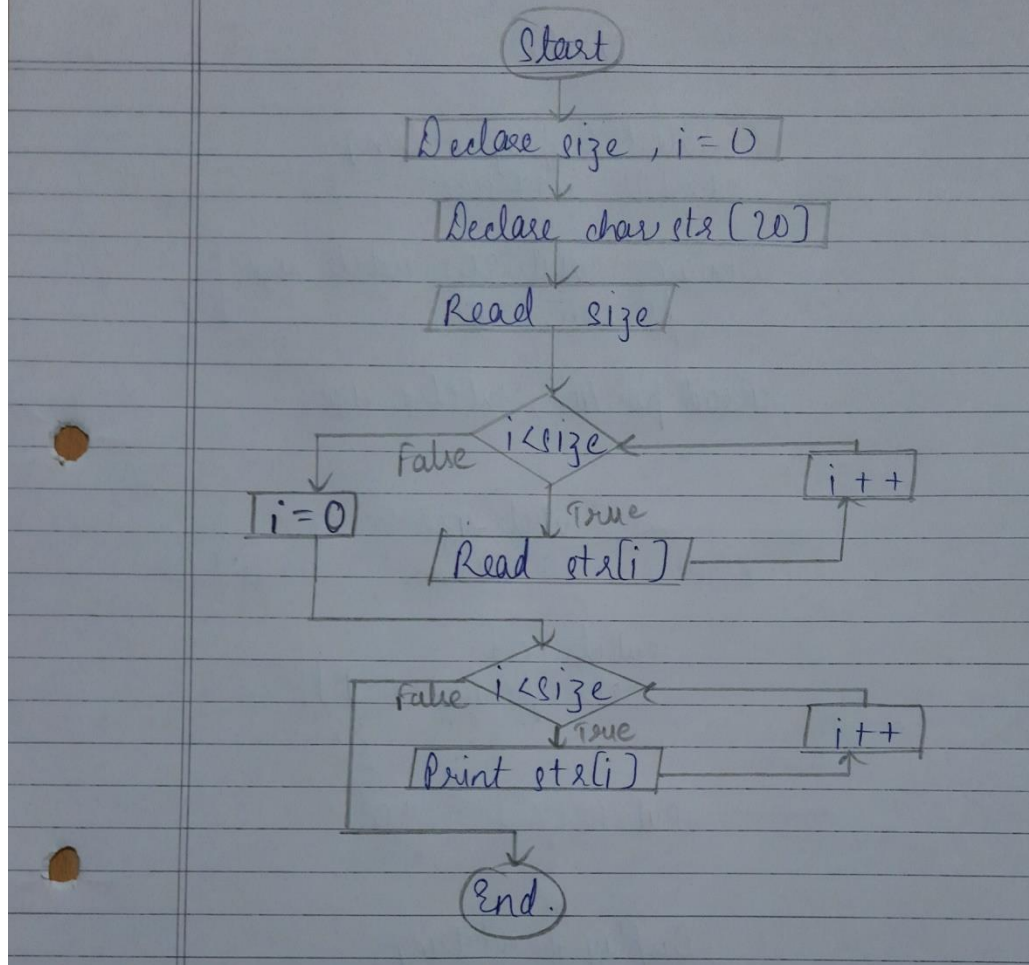 Start
Declare size, i = 0
Declare char str [20]
Read size
i<size
False
i++
i = 0
True
Read str[i]
i<size
False
i++
True
Print str[i]
End.